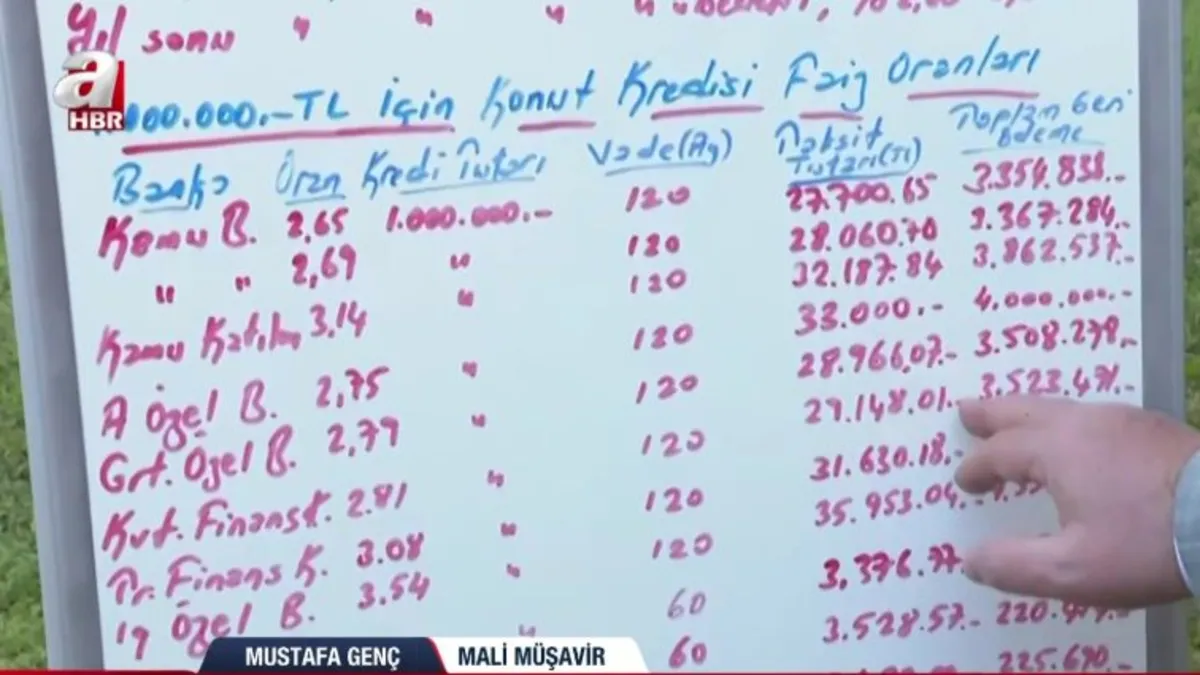 Yıl sonu " " " "
a HBR
000.000.-TL için Konut Kredisi Faiz Oranları
Banka Oran Kredi Tutarı Vade(Ay) Taksit Tutarı(TL) Toplam Geri ödeme
Kamu B. 2,65 1.000.000.- 120 27.700.65 3.354.838.-
" " 2,69 " 120 28.060.70 3.367.284.-
Kamu Katılım 3,14 " 120 32.187.84 3.862.537.-
A Özel B. 2,75 " 120 33.000.- 4.000.000.-
Grt. Özel B. 2,79 " 120 28.966,07.- 3.508.278.-
Kvt. Finans K. 2.81 " 120 29.148.01.- 3.523.471.-
Pr. Finans K. 3.08 " 120 31.630.18.-
19 Özel B. 3.54 " 120 35.953.04.-
60 3.376.77. 220.
60 3.528.57.- 225.690.-
MUSTAFA GENÇ MALİ MÜŞAVİR